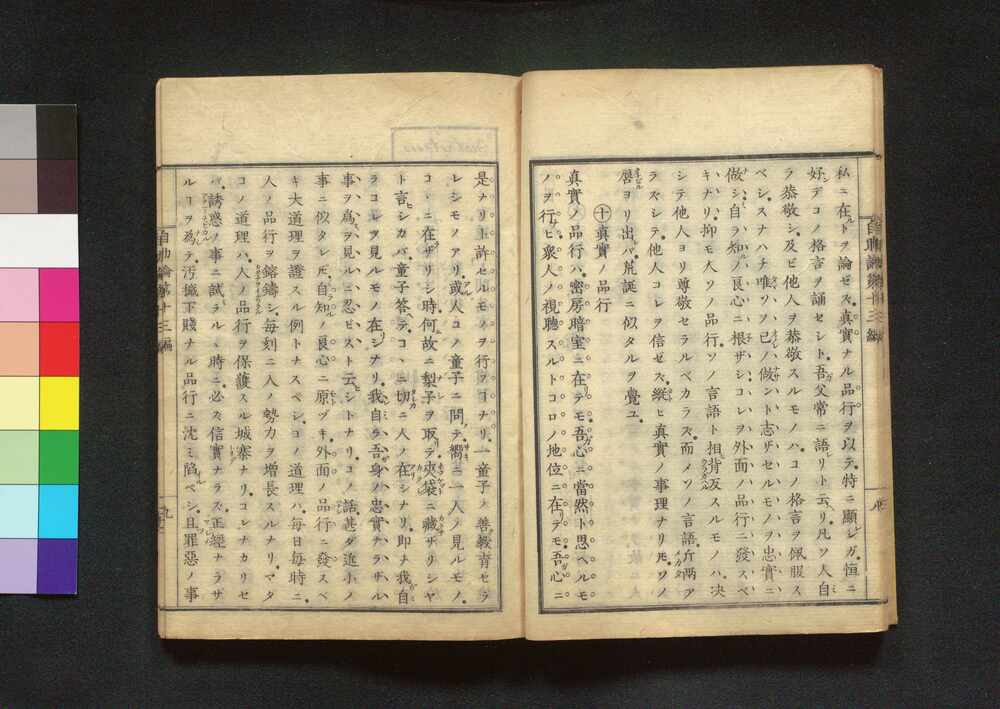 私ニ在トヲ論ゼズ眞實ナル品行ヲ以テ特ニ顯レガ恒ニ
好デコノ格言ヲ誦セシト吾父常ニ語リト云リ凡ソ人自
ラ恭敬シ及ビ他人ヲ恭敬スルモノハコノ格言ヲ佩服ス
ベシスナハチ唯ソノ己ノ做ント志ザセルモノヲ忠實ニ
做シ自ラ知ノ良心ニ根ザシコレヲ外面ノ品行ニ發スベ
キナリ抑モ大ソノ品行ソノ言語ト相背反スルモノハ决
シテ他人ヨリ尊敬セラルベカラズ而メソノ言語斤兩ア
ラズシテ他人コレヲ信ゼズ縱ヒ眞實ノ事理ナリ𪜈ソノ
唇ヨリ出バ荒誕ニ似タルヲ覺ユ
十眞實ノ品行
眞實ノ品行ハ密房暗室ニ在テモ吾心ニ當然ト思ヘルモ
ノヲ行ヒ衆人ノ視聽スルトコロノ地位ニ在テモ吾心ニ
自助論第十三編
是ナリト許セルモノヲ行フコナリ一童子ノ善教育セラ
レシモノアリ或人コノ童子ニ問テ嚮ニ一人ノ見ルモノ
コヽニ在ザリシ時何故ニ梨子ヲ取テ夾袋ニ藏ザリシヤ
ト言シカバ童子答ヘテコヽニ切ニ人ノ在シナリ即チ我自
ラコレヲ見ルモノ在シナリ我自ラ吾身ノ忠實ナラザル
事ヲ爲ヲ見ルニ忍ビズト云シトナリコノ話甚ダ些小ノ
事ニ似タレ𪜈自知ノ良心ニ原ヅキ外面ノ品行ニ發スベ
キ大道理ヲ證スル例トナスベシコノ道理ハ毎日毎時ニ
人ノ品行ヲ鎔鑄シ毎刻ニ人ノ勢力ヲ増長スルナリマタ
コノ道理ハ人ノ品行ヲ保護スル城寨ナリコレナカリセ
バ誘惑ノ事ニ試ラルヽ時ニ必ズ信實ナラズ正經ナラザ
ルコヲ為テ汚穢下賤ナル品行ニ沈ミ陷ベシ且罪惡ノ事
自助論第十三編